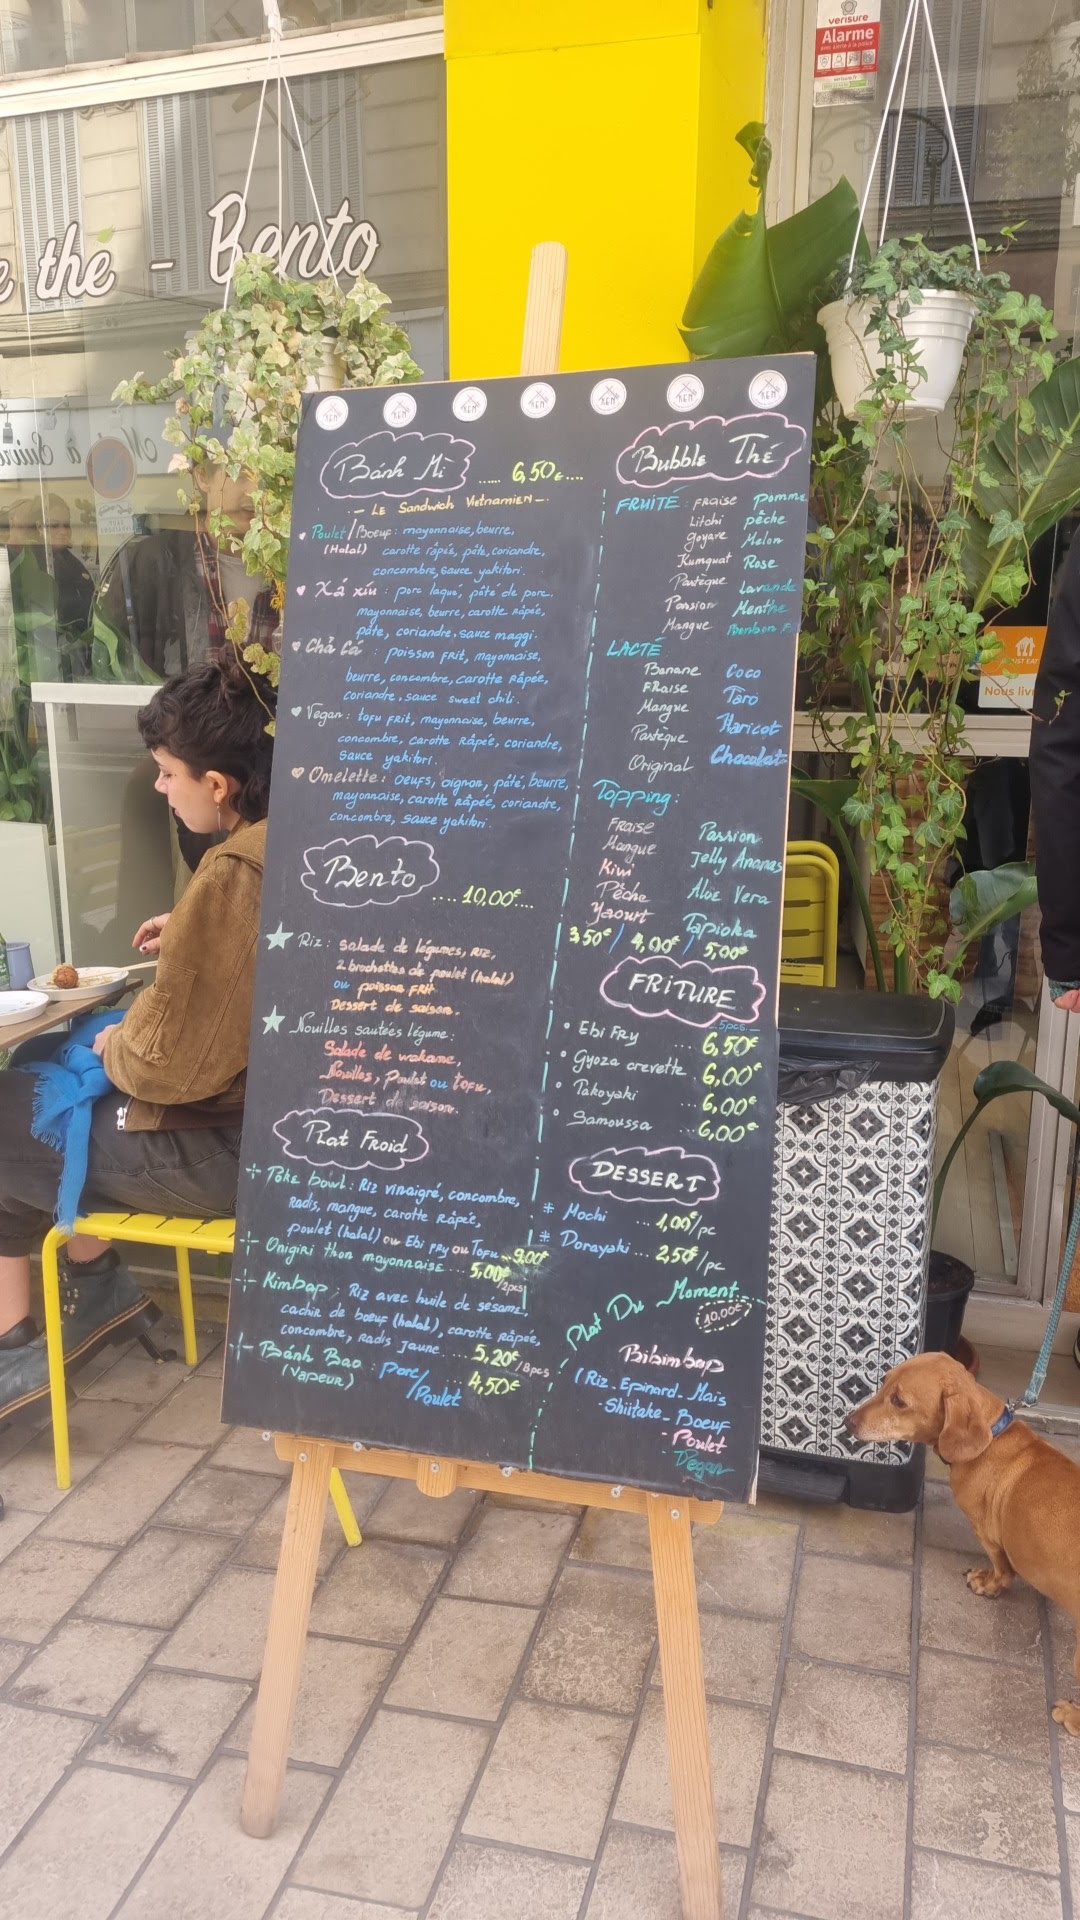 verisure
Alarme
avec alerte à la police
verisure.fr
e thé - Bento
Nous livr
KEM
Bánh Mì ...... 6,50€....
- LE Sandwich VietnamiEN -
Poulet/Boeuf : mayonnaise, beurre,
(Halal) carotte râpée, pâte, coriandre,
concombre, sauce yakitori.
Xá xíu : porc laqué, pâté de porc.
mayonnaise, beurre, carotte RÂpée,
pâte, coriandre, sauce maggi.
Chả Cá : poisson FRit, mayonnaise,
beurre, concombre, carotte RÂpée,
coriandre, sauce sweet chili.
Vegan : tofu FRit, mayonnaise, beurre,
concombre, carotte RÂpée, coriandre,
sauce yakitori.
Omelette : oeufs, oignon, pâté, beurre,
mayonnaise, carotte RÂpée, coriandre,
concombre, sauce yakitori.
Bento .... 10,00€....
Riz : salade de légumes, Riz,
2 brochettes de poulet (halal)
ou poisson FRit
Dessert de saison.
Nouilles sautées légume :
Salade de wakame,
Nouilles, poulet ou tofu,
Dessert de saison.
Plat Froid
Poke bowl : Riz vinaigré, concombre,
Radis, mangue, carotte RÂpée,
poulet (halal) ou Ebi FRy ou Tofu ... 9,00€
Onigiri thon mayonnaise ... 5,00€/2pcs
Kimbap : Riz avec huile de sésame,
cachir de boeuf (halal), carotte RÂpée,
concombre, radis jaune .... 5,20€/8pcs
Bánh Bao : porc/ ... 4,50€
(VapeuR) Poulet
Bubble Thé
FRUITÉ : FRAISE Pomme
Litchi pêche
goyave Melon
Kumquat Rose
Pastèque Lavande
Passion Menthe
Mangue Bonbon F.
LACTÉ
Banane Coco
FRaise Taro
Mangue Haricot
Pastèque Chocolat
Original
Topping :
FRaise Passion
Mangue Jelly Ananas
Kiwi Aloe Vera
Pêche Tapioka
Yaourt
3,50€ / 4,00€ / 5,00€
FRiTURE
5pcs
Ebi FRy ... 6,50€
Gyoza crevette ... 6,00€
Takoyaki ... 6,00€
Samoussa ... 6,00€
DESSERT
Mochi ... 1,00€/pc
Dorayaki ... 2,50€/pc
Plat Du Moment
10,00€
Bibimbap
(Riz - Epinard - Maïs
- Shiitake - Boeuf
- Poulet
- Vegan